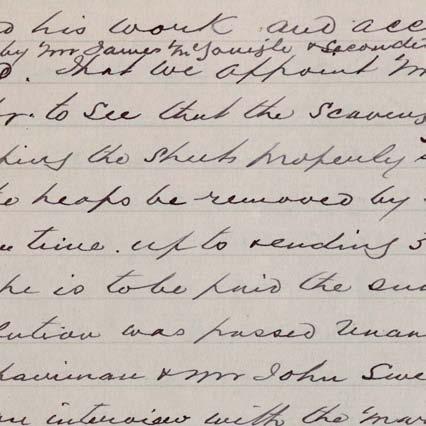 his work and acc
by Mr James McGonigle & Seconde
That we appoint M
to See that the Scaveng
the Streets properly
heaps be removed by
time. up to & ending 3
he is to be paid the sum
lution was passed Unan
hairman & Mr John Swe
an interview with the Mar